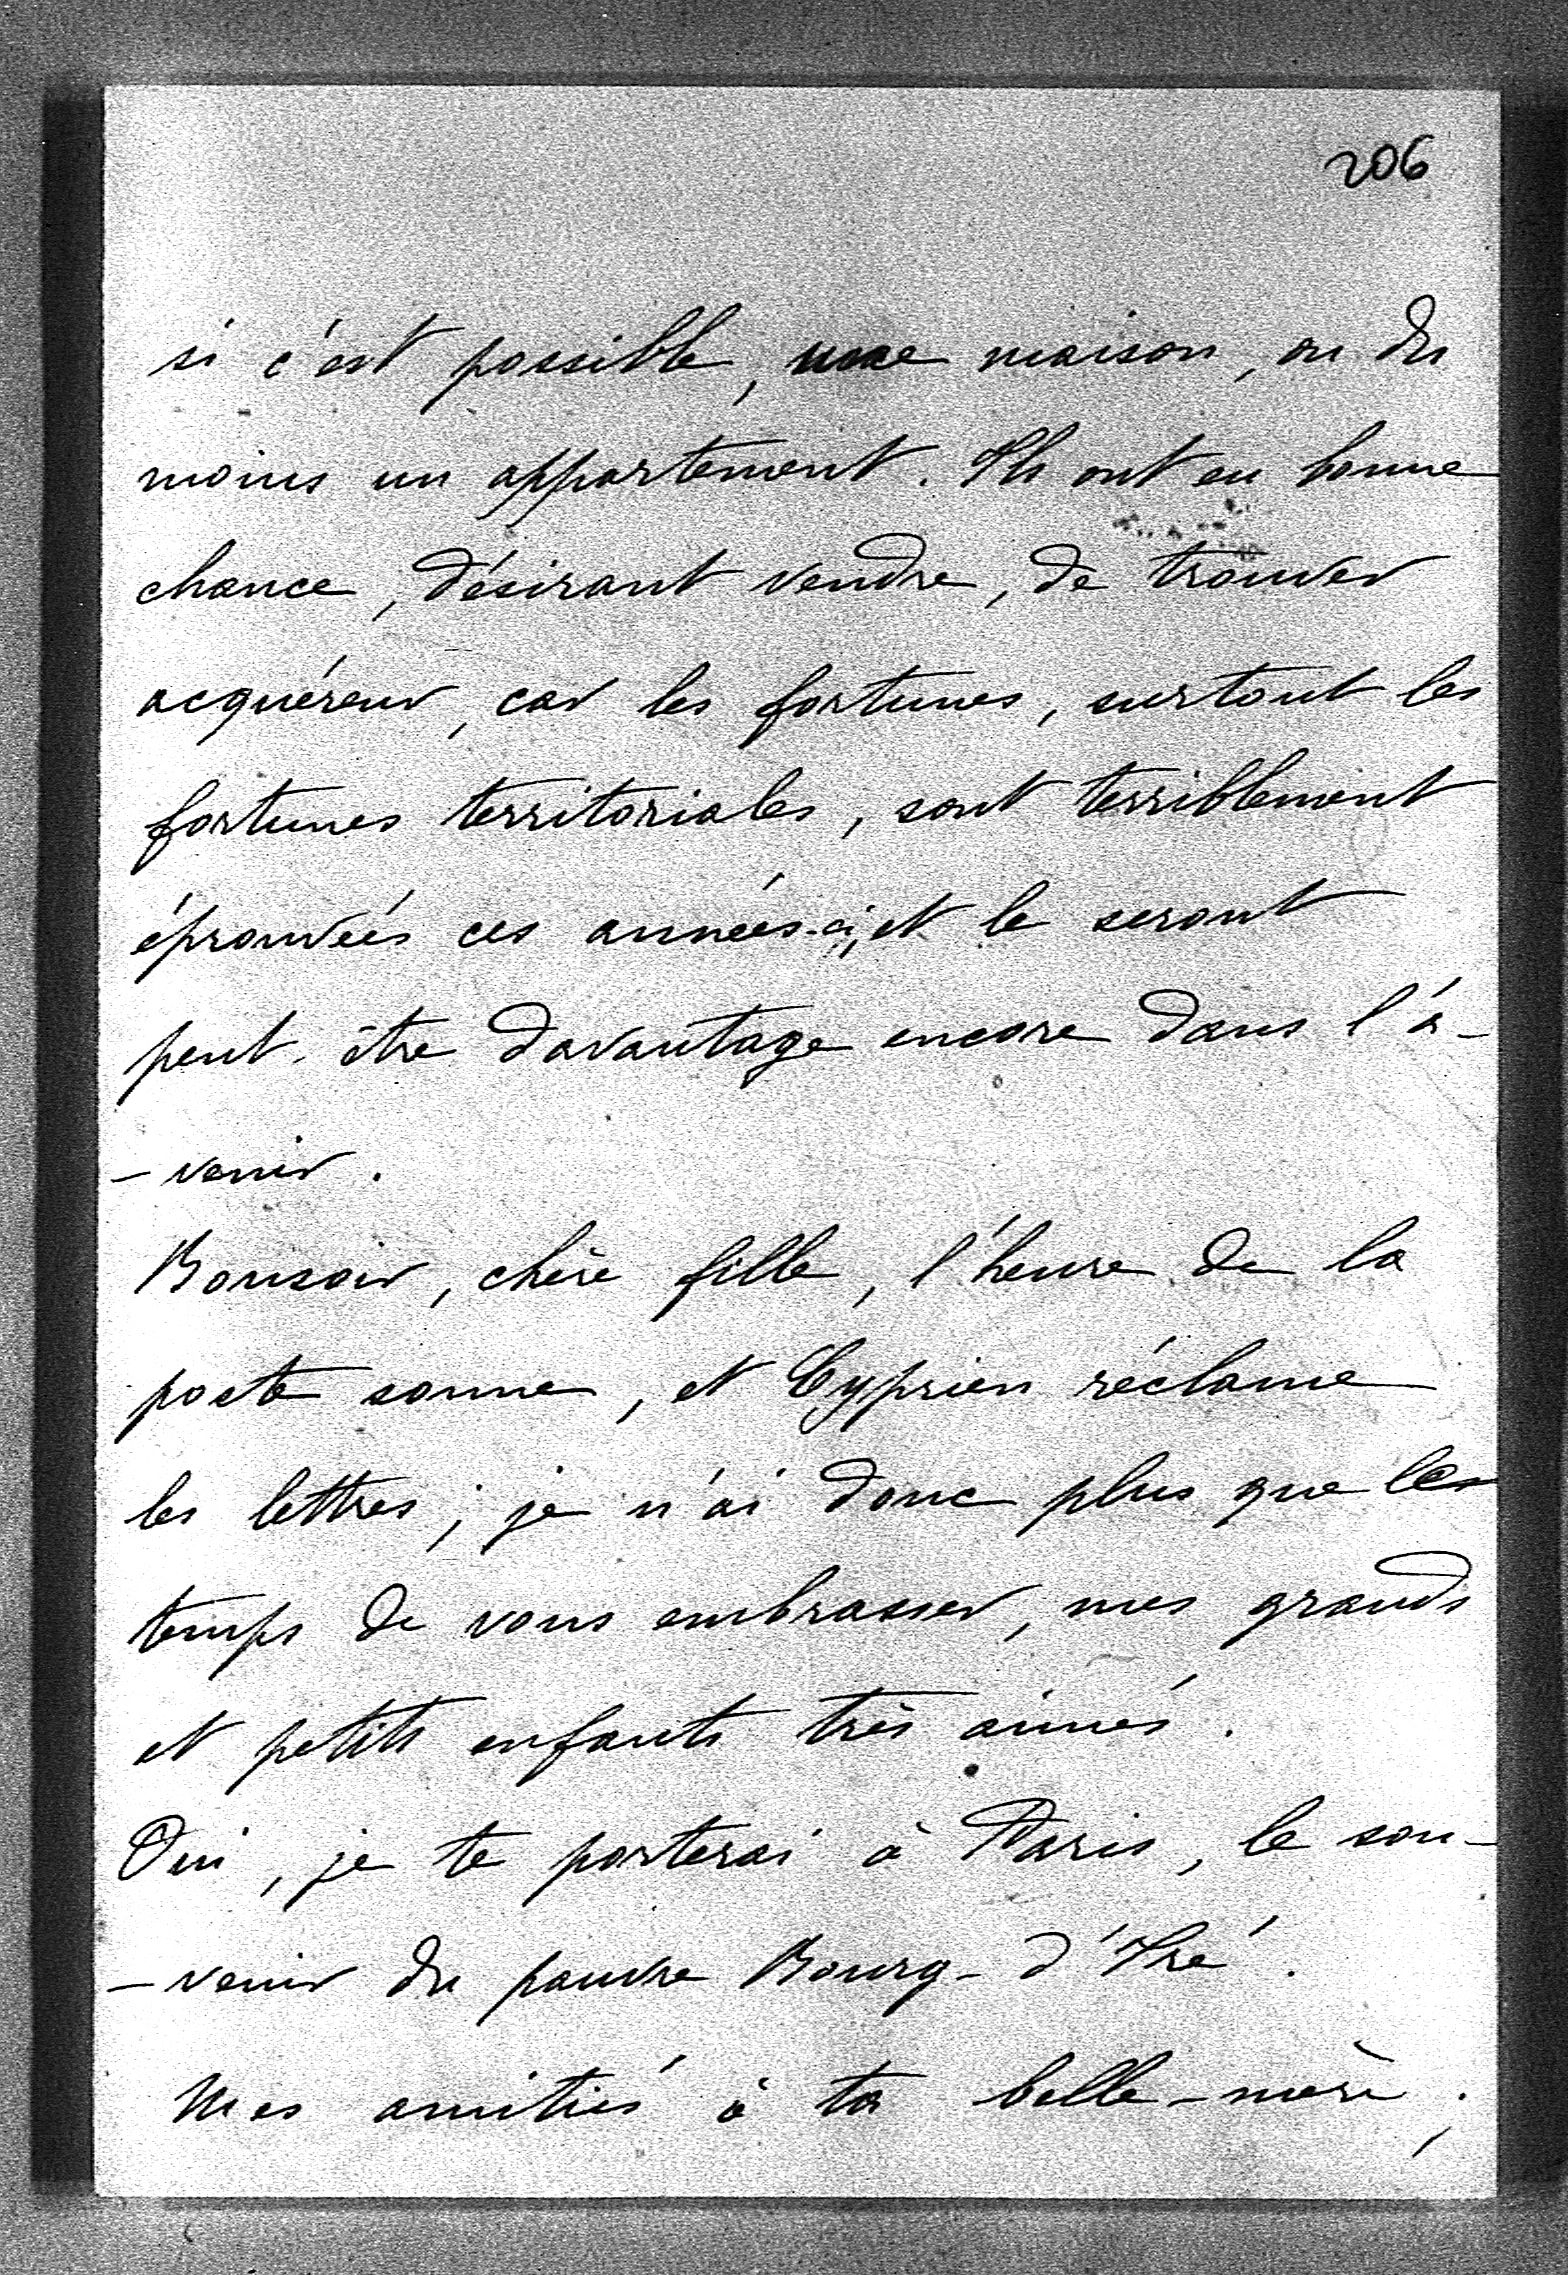 206
si c'est possible, une maison, ou du
moins un appartement. Ils ont eu bonne
chance, désirant vendre, de trouver
acquéreur, car les fortunes, surtout les
fortunes territoriales, sont terriblement
éprouvées ces années-ci, et le seront
peut-être davantage encore dans l'a-
-venir.
Bonsoir, chère fille, l'heure de la
poste sonne, et Cyprien réclame
les lettres; je n'ai donc plus que le
temps de vous embrasser, mes grands
et petits enfants très aimés.
Oui, je te porterai à Paris, le sou-
-venir du pauvre Bourg-d'Iré.
Mes amitiés à ta belle-mère;